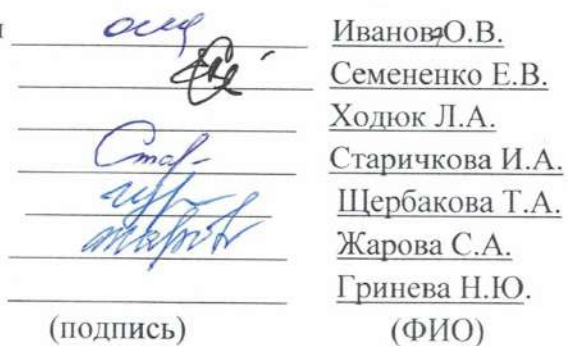 Иванов О.В.
Семененко Е.В.
Ходюк Л.А.
Старичкова И.А.
Щербакова Т.А.
Жарова С.А.
Гринева Н.Ю.
(подпись) (ФИО)